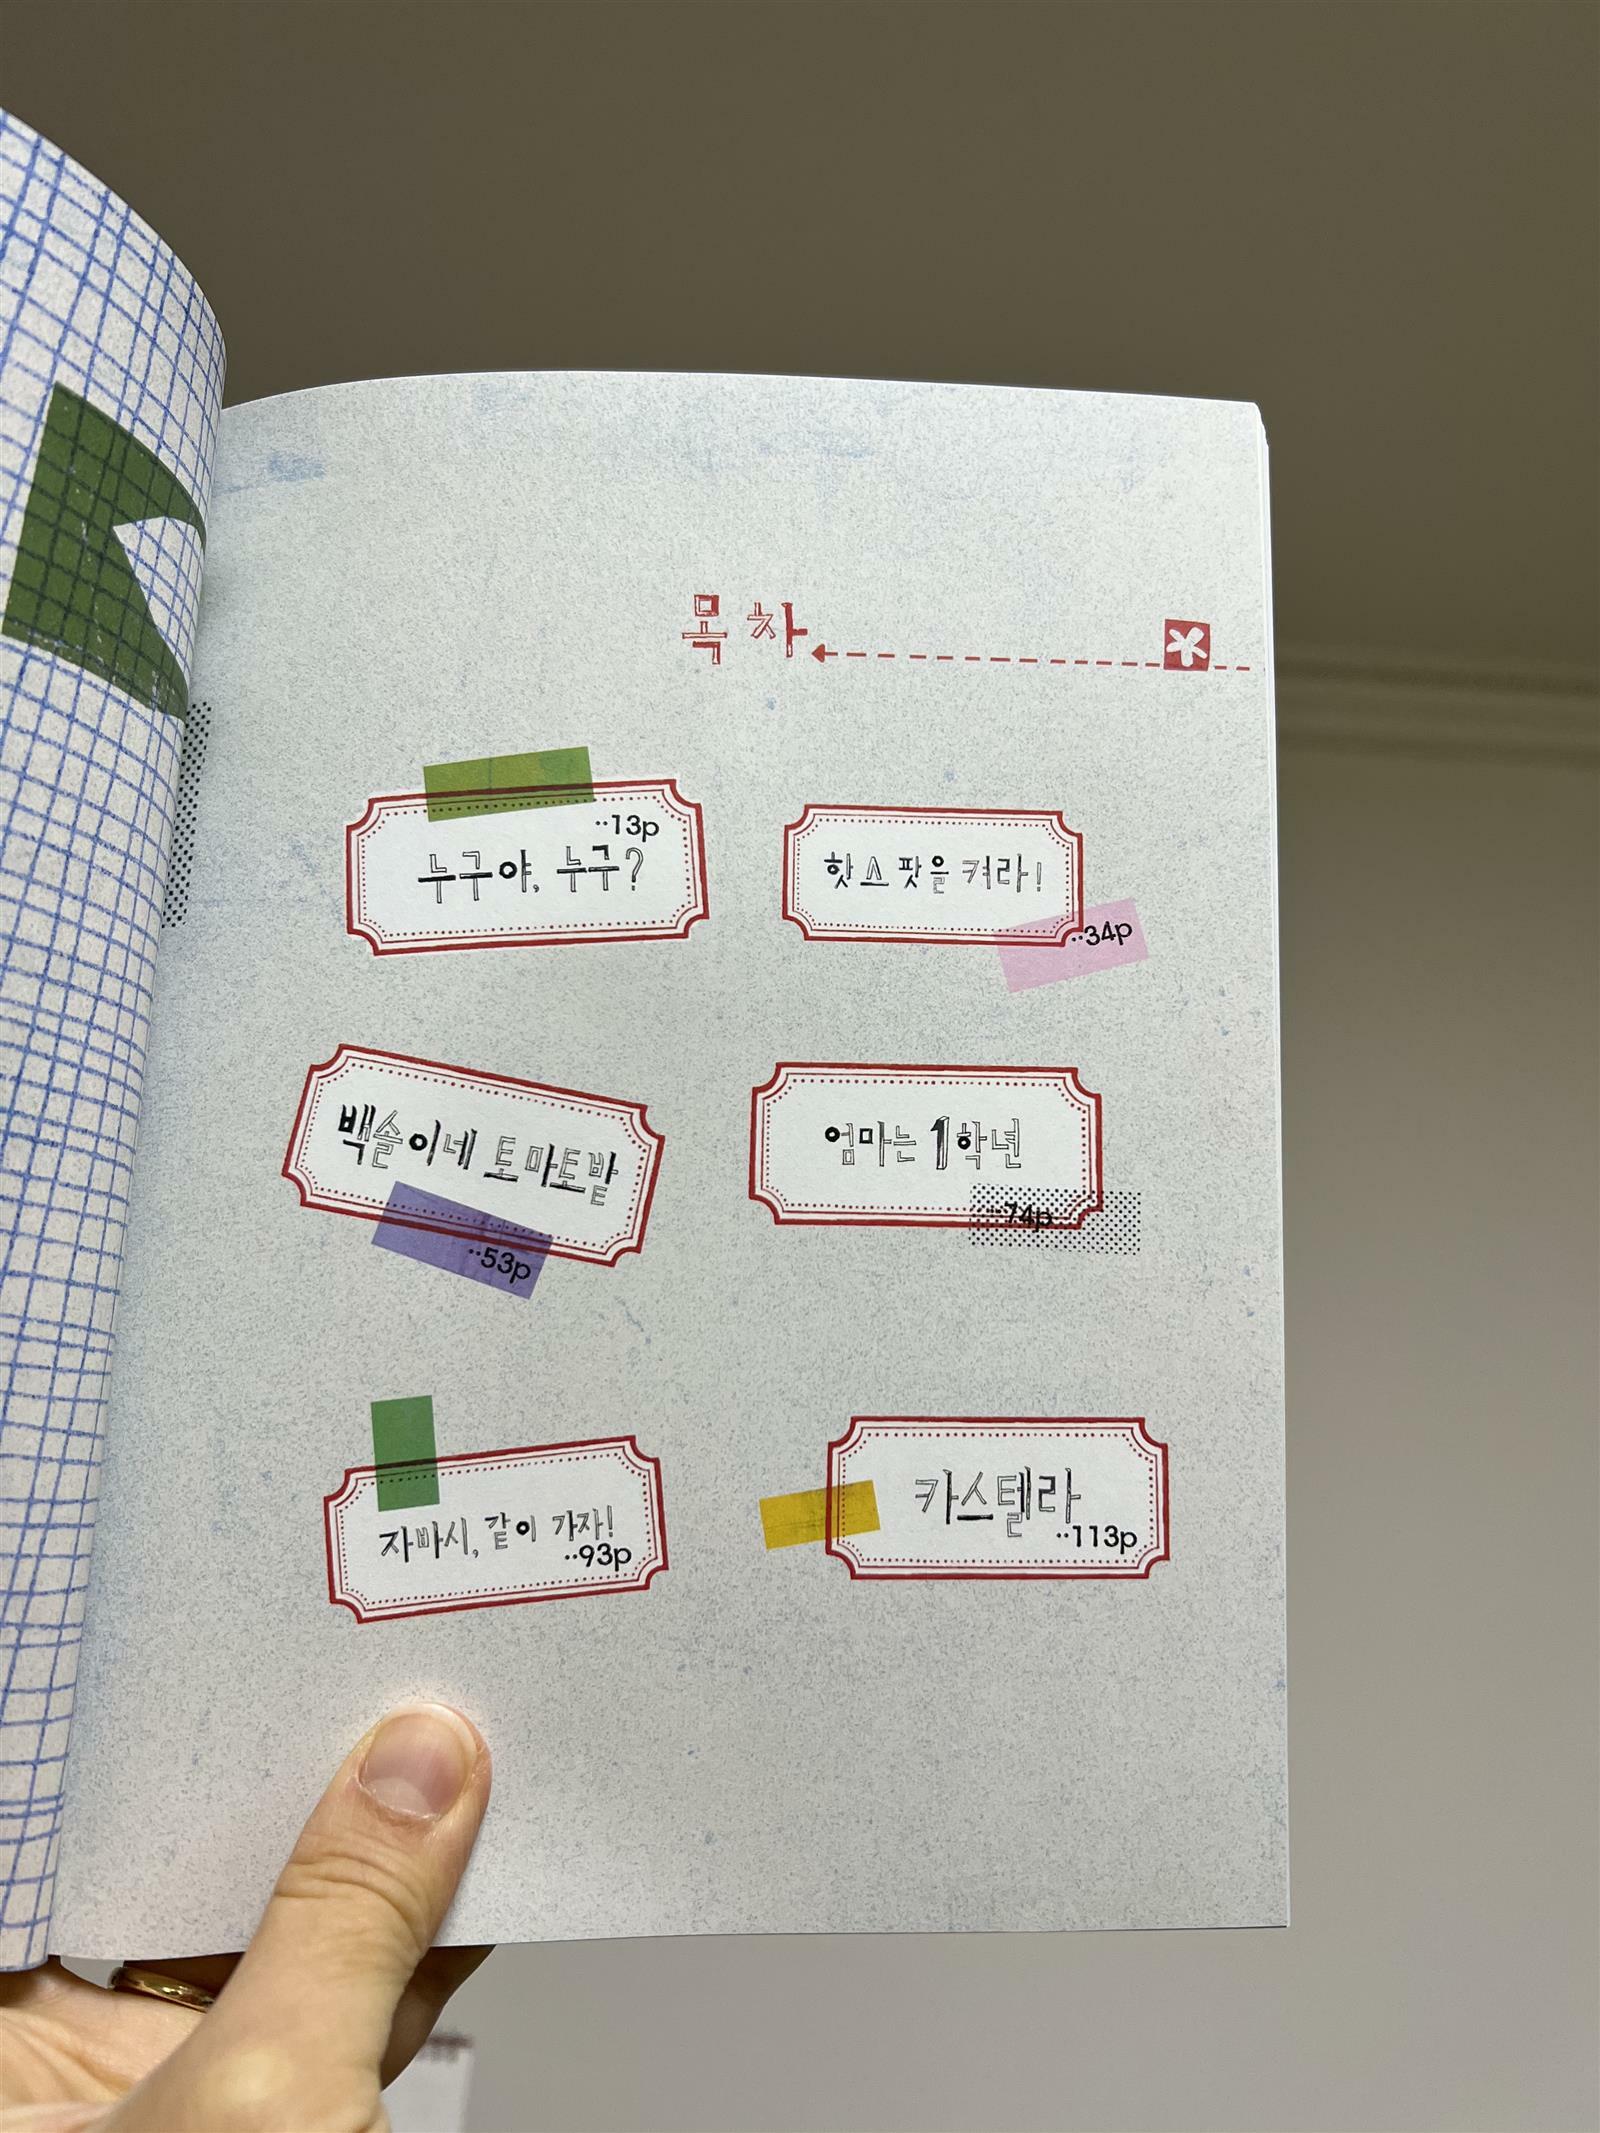 목차
··13p
누구야, 누구?
핫스팟을 켜라!
··34p
백솔이네 토마토밭
··53p
엄마는 1학년
··74p
자바시, 같이 가자!
··93p
카스텔라
··113p